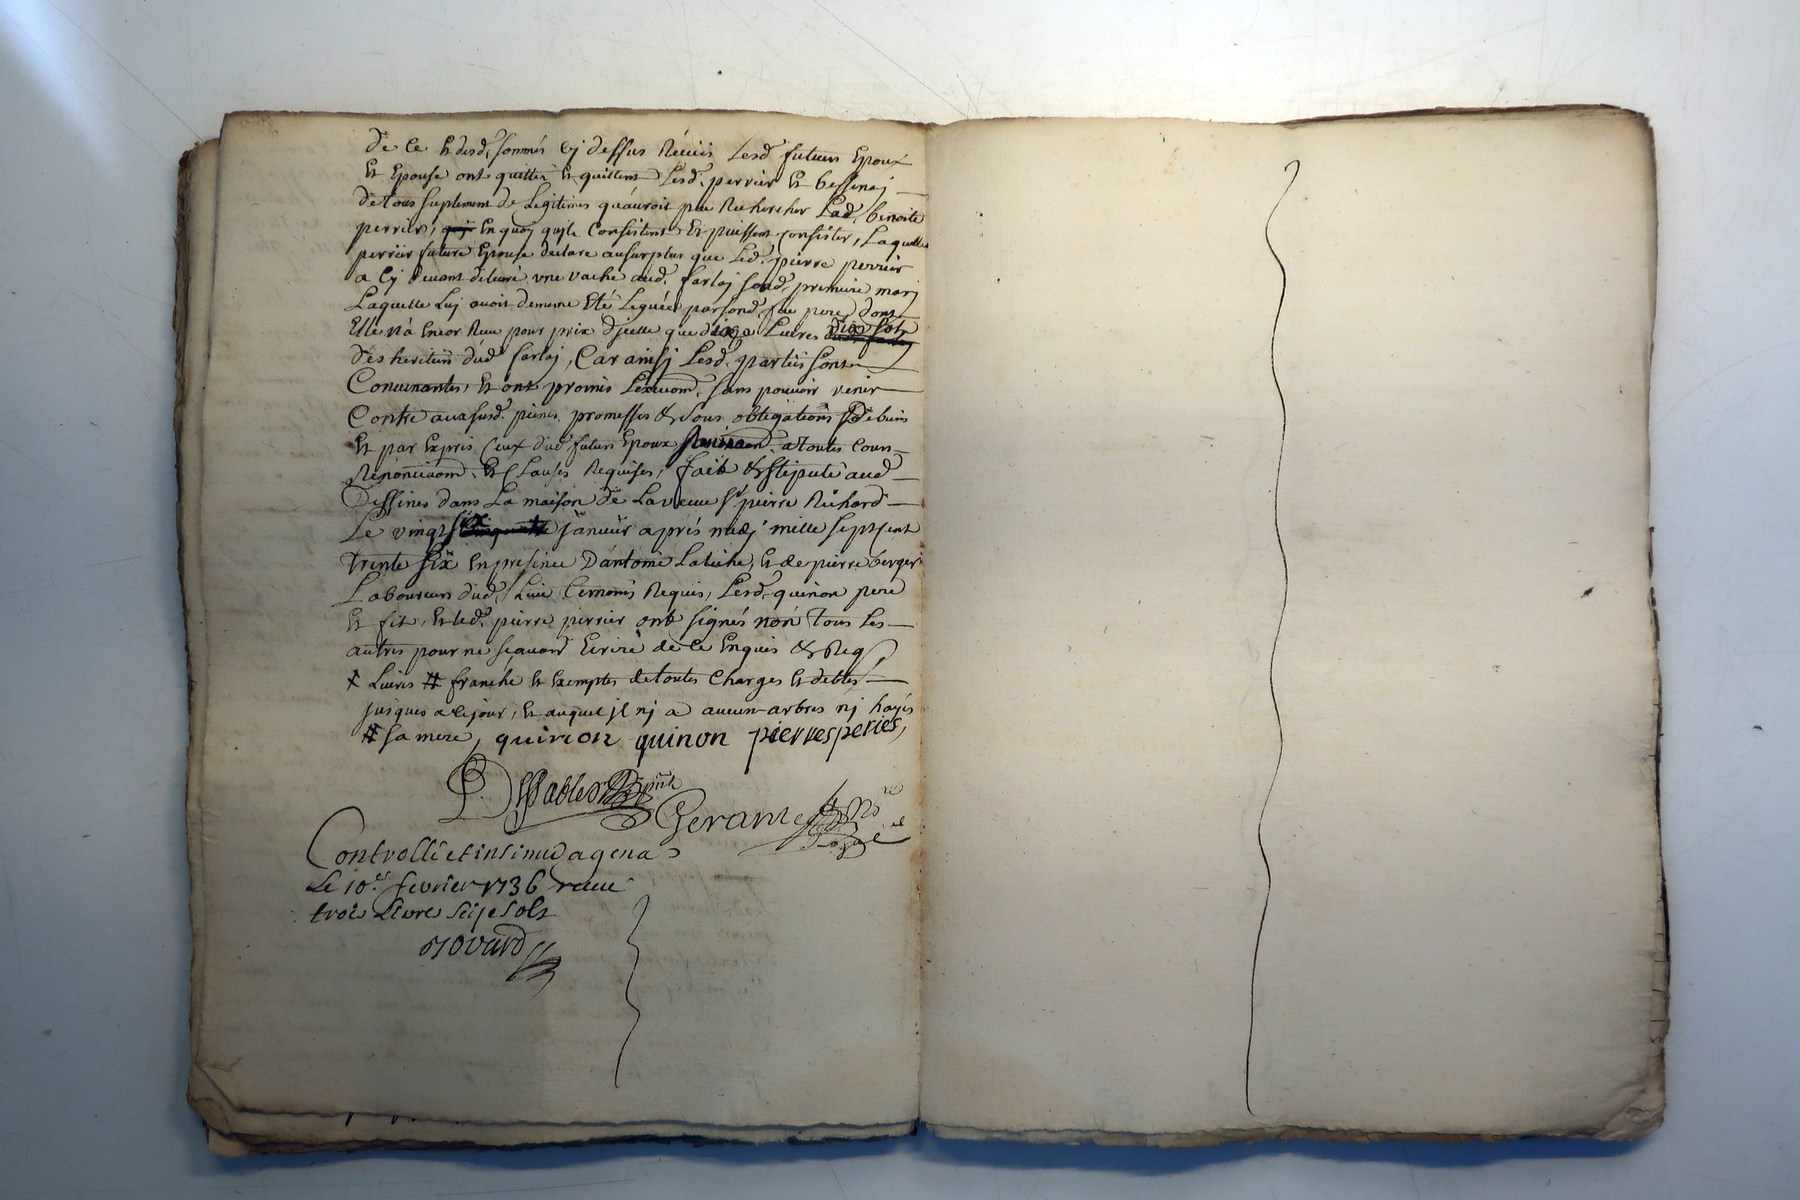 de ce & desd. sommes cy dessus Receües Lesd. futturs Epoux
Et Epouse ont quittés Et quittent Lesd. perrier Et bessenaj
de tous suplement de Legitimes qu'auroit peu Rechercher Lad. benoite
perrier, en quoy qu'ils Consistent Et puissent consister, Laquelle
perrier future Epouse declare ausurplus que Led. pierre perrier
a Cy devant delivré une vache aud. farlaj sond. premiere marj
Laquelle Luj avoit dememe Eté Leguée par sond. feu pere dont
Elle n'a Encor Reçu pour prix d'jcelle que Livres dix sols
des heritiers dud. farlaj, Car ainsj Lesd. parties sont
Convenantes, Et ont promis Lexecuond. sans pouvoir venir
Contre auxsusd. peines, promesses & sous obligations de biens
Et par Expres Ceux dud. futturs Epoux a toutes Cours
Renonciaond. Et Clauses Requises, fait & stipulé aud.
Dessines dans La maison de La veuve Sr pierre Richard
Le vingt six janvier aprés midj mille septcent
trente six En presence D'antoine Latiche, Et de pierre berger
Laboureurs dud. Lieu temoins Requis, Lesd. quinon pere
Et fil, Et led. pierre perrier ont signés non tous les
autres pour ne sçavoir Ecrire de ce Enquis & Req
x Livres # franche Et Exemptes de toutes Charges Et debtes
jusques a ce jour, Et auquel jl nj a aucun arbres nj hayes
# sa mere, quinon quinon pierres peries,
Gerante
Controllé et insinué a gena
Le 10e. fevrier 1736 receu
trois Livres seije sols